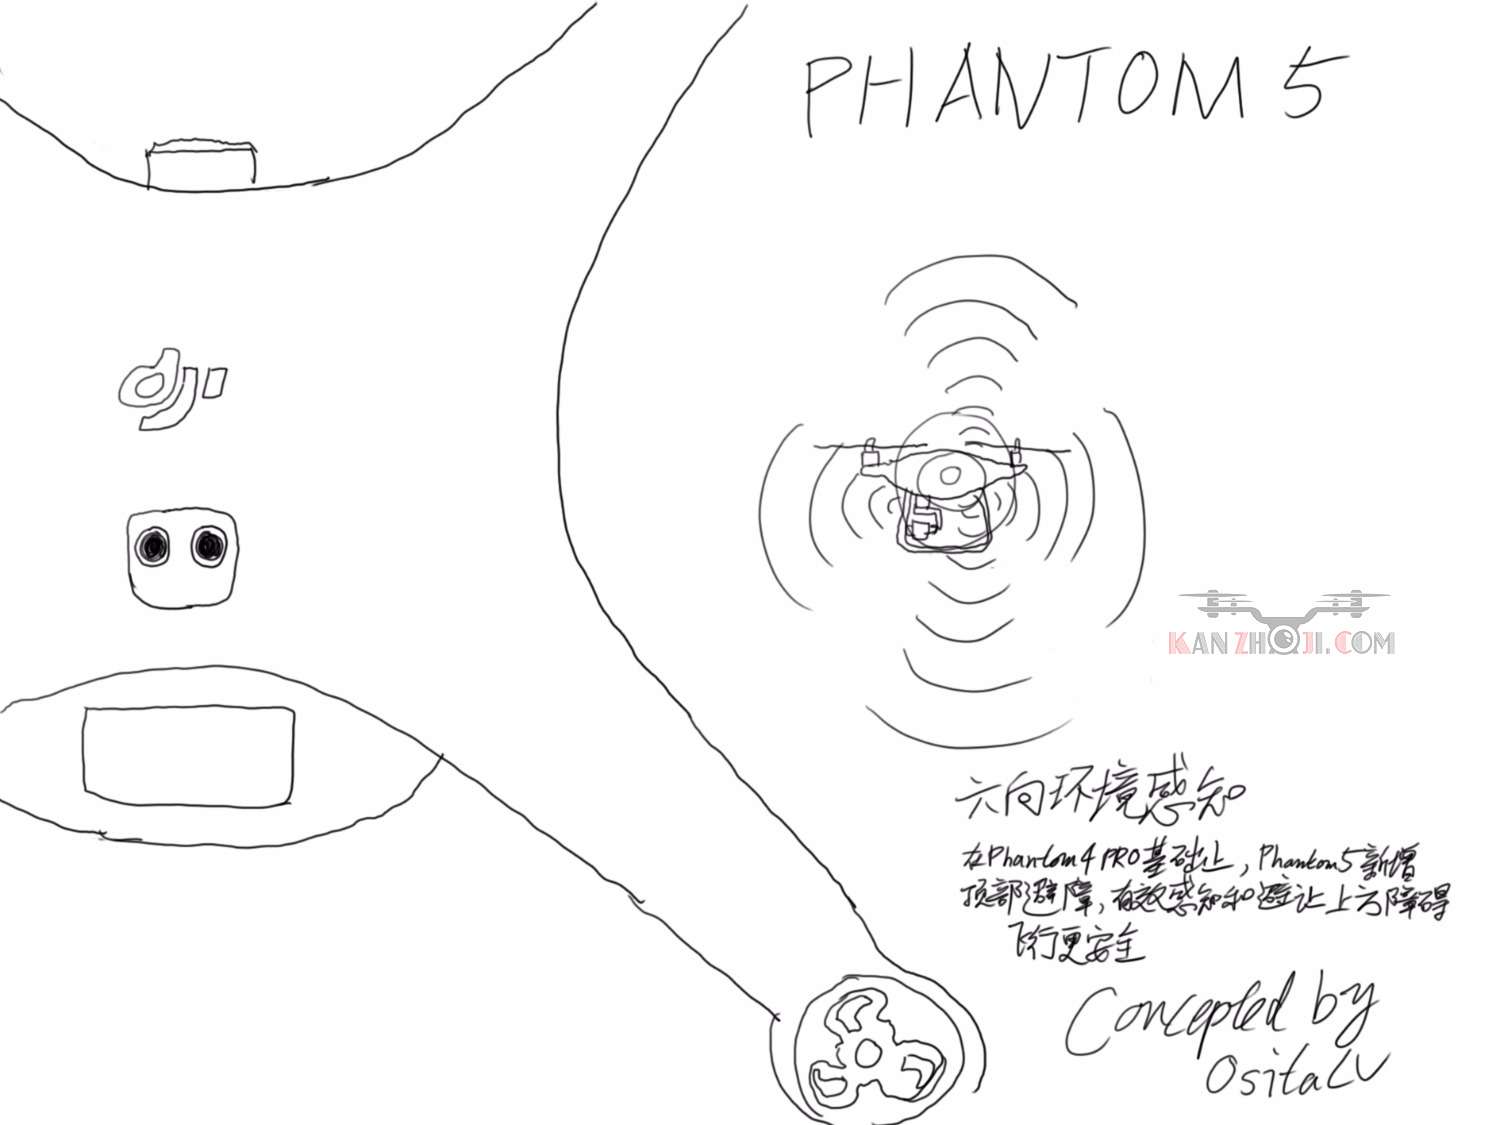 PHANTOM 5
dji
KANZHOJI.COM
六向环境感知
在Phantom4 PRO基础上，Phantom5新增
顶部避障，有效感知和避让上方障碍
飞行更安全
Concepted by
OsitaLV